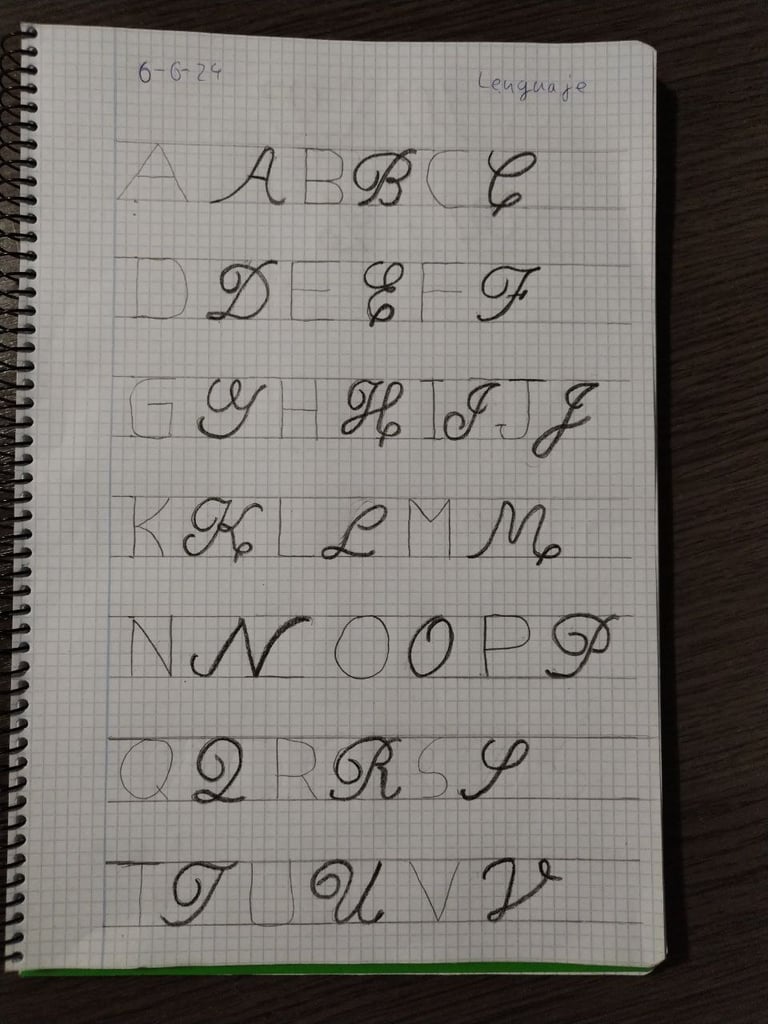 6-6-24 Lenguaje
A A B B C C
D D E E F F
G G H H I I J J
K K L L M M
N N O O P P
Q Q R R S S
T T U U V V